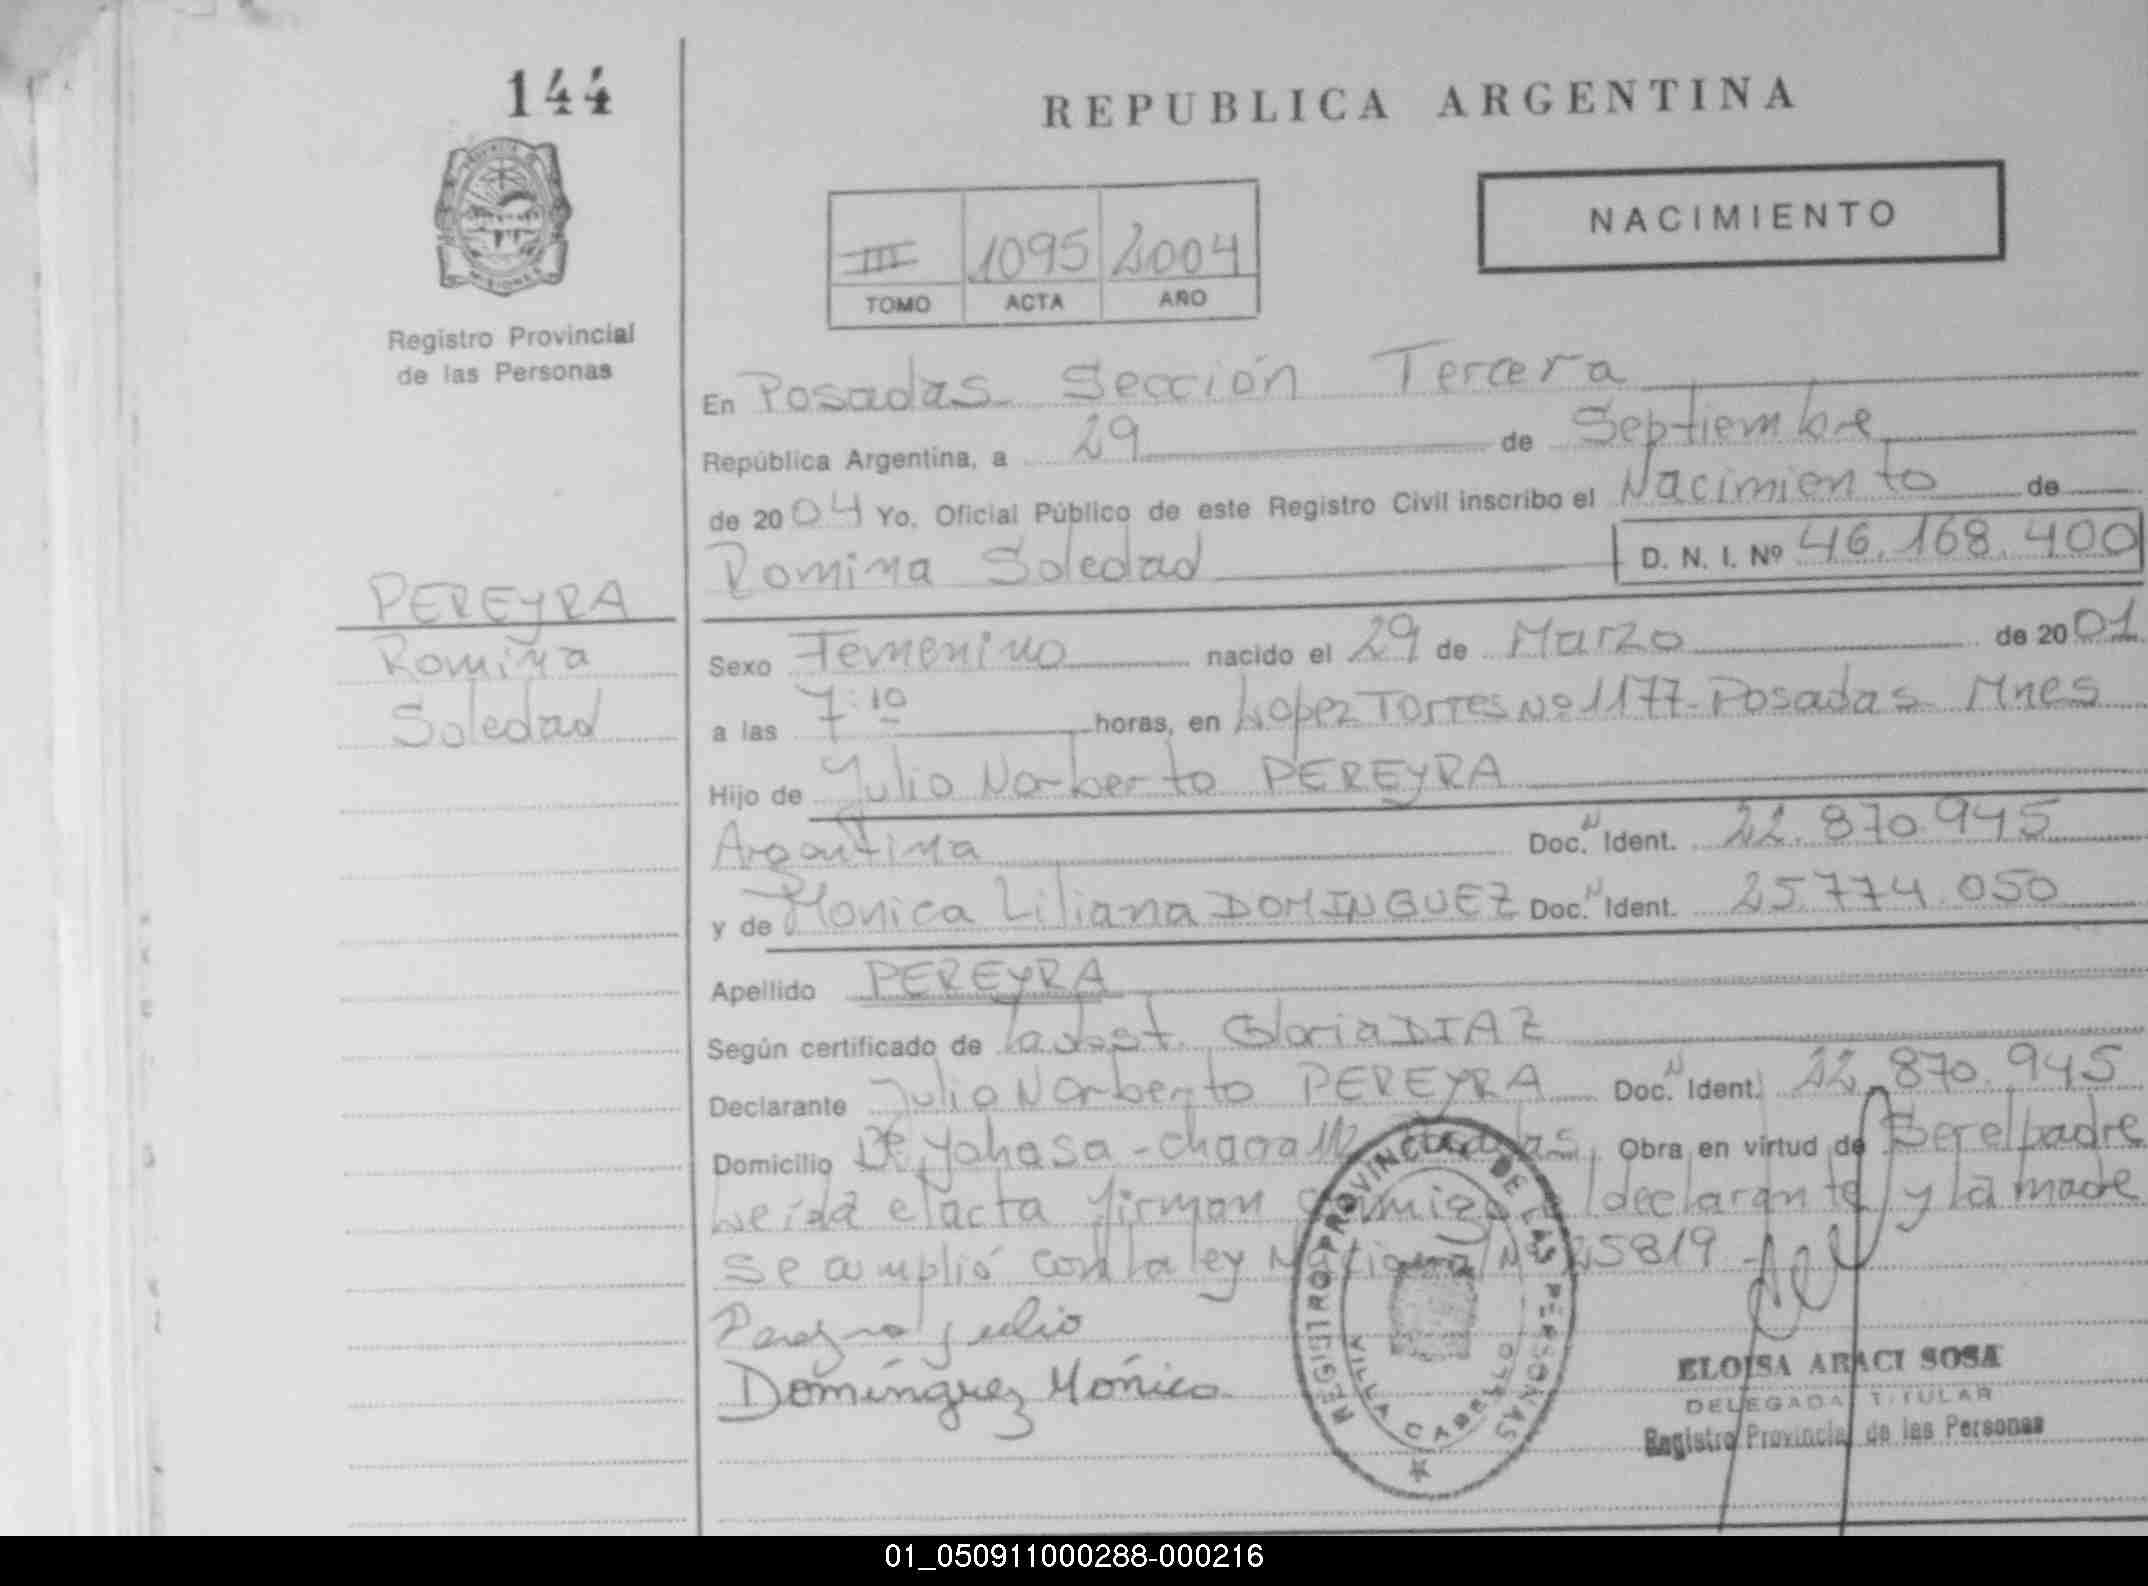 144
REPUBLICA ARGENTINA
NACIMIENTO
III 1095 2004
TOMO ACTA AÑO
Registro Provincial
de las Personas
En Posadas Sección Tercera
República Argentina, a 29 de Septiembre
de 2004 Yo. Oficial Público de este Registro Civil inscribo el Nacimiento de
Romina Soledad D. N. I. Nº 46.168.400
PEREYRA
Romina
Soledad
Sexo Femenino nacido el 29 de Marzo de 2001
a las 7:10 horas, en Lopez Torres Nº 1177-Posadas Mnes
Hijo de Julio Norberto PEREYRA
Argentina Doc. N Ident. 22.870.945
y de Monica Liliana DOMINGUEZ Doc. N Ident. 25.774.050
Apellido PEREYRA
Según certificado de la obst. Gloria DIAZ
Declarante Julio Norberto PEREYRA Doc. N Ident. 22.870.945
Domicilio Yohasa - chacra 112 Obra en virtud de Ser el padre
Leída el acta firman conmigo el declarante y la madre
Se cumplió con la ley Nacional Nº 25819
Pereyra Julio
Domínguez Mónica
REGISTRO PROVINCIAL DE LAS PERSONAS
VILLA CABELLO
ELOISA ARACI SOSA
DELEGADA TITULAR
Registro Provincial de las Personas
01_050911000288-000216